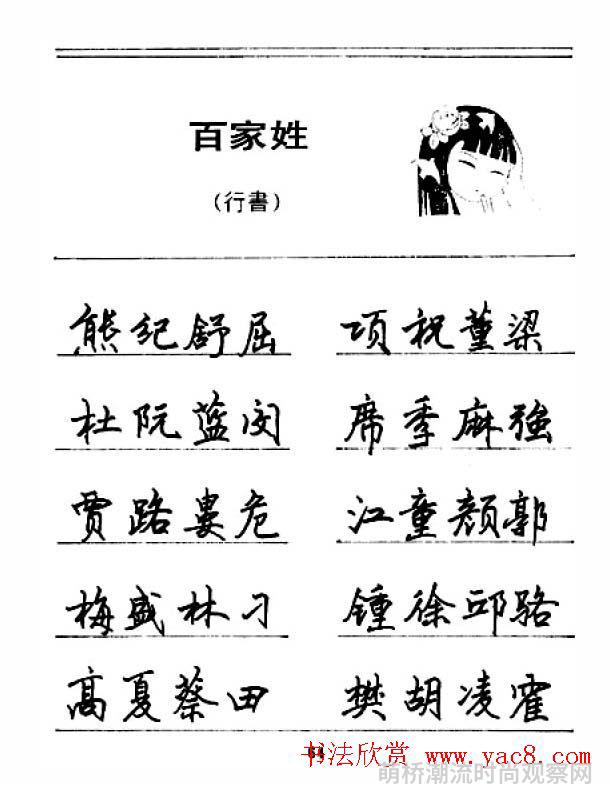 百家姓
(行書)
熊纪舒屈 项祝董梁
杜阮蓝闵 席季麻強
贾路婁危 江童颜郭
梅盛林刁 鍾徐邱骆
高夏蔡田 樊胡凌霍
64
书法欣赏 www.yac8.com
萌桥潮流时尚观察网